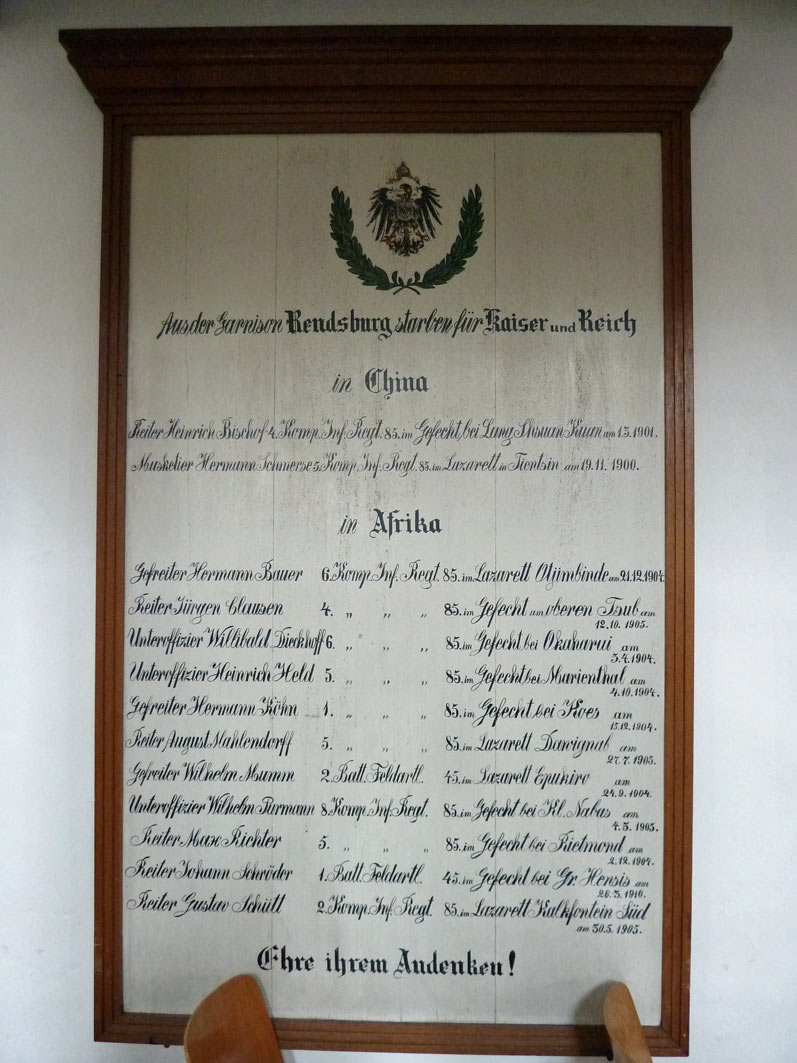 Aus der Garnison Rendsburg starben für Kaiser und Reich
in China
Reiter Heinrich Bischof 4. Komp. Inf. Regt. 85. im Gefecht, bei Lung Shsuan Kuan am 1.3.1901.
Musketier Hermann Schmerse 5. Komp. Inf. Regt. 85. im Lazarett in Tientsin am 19.11.1900.
in Afrika
Gefreiter Hermann Bauer 6. Komp. Inf. Regt. 85. im Lazarett Otjimbinde am 21.12.1904
Reiter Jürgen Clausen 4. „ „ „ 85. im Gefecht am oberen Tsub am
12.10.1905.
Unteroffizier Willibald Dieckhoff 6. „ „ „ 85. im Gefecht bei Okaharui am
3.4.1904.
Unteroffizier Heinrich Held 5. „ „ „ 85. im Gefecht bei Marienthal am
4.10.1904.
Gefreiter Hermann Köhn 1. „ „ „ 85. im Gefecht bei Koes am
15.12.1904.
Reiter August Mahlendorff 5. „ „ „ 85. im Lazarett Dawignab am
27.7.1905.
Gefreiter Wilhelm Mumm 2. Batt. Feldartl. 45. im Lazarett Epukiro am
24.9.1904.
Unteroffizier Wilhelm Purmann 8. Komp. Inf. Regt. 85. im Gefecht bei Kl. Nabas am
4.3.1905.
Reiter Max Richter 5. „ „ „ 85. im Gefecht bei Rietmond am
2.12.1904.
Reiter Johann Schröder 1. Batt. Feldartl. 45. im Gefecht bei Gr. Hensis am
26.3.1910.
Reiter Gustav Schütt 2. Komp. Inf. Regt. 85. im Lazarett Kalkfontein Süd
am 30.5.1905.
Ehre ihrem Andenken!